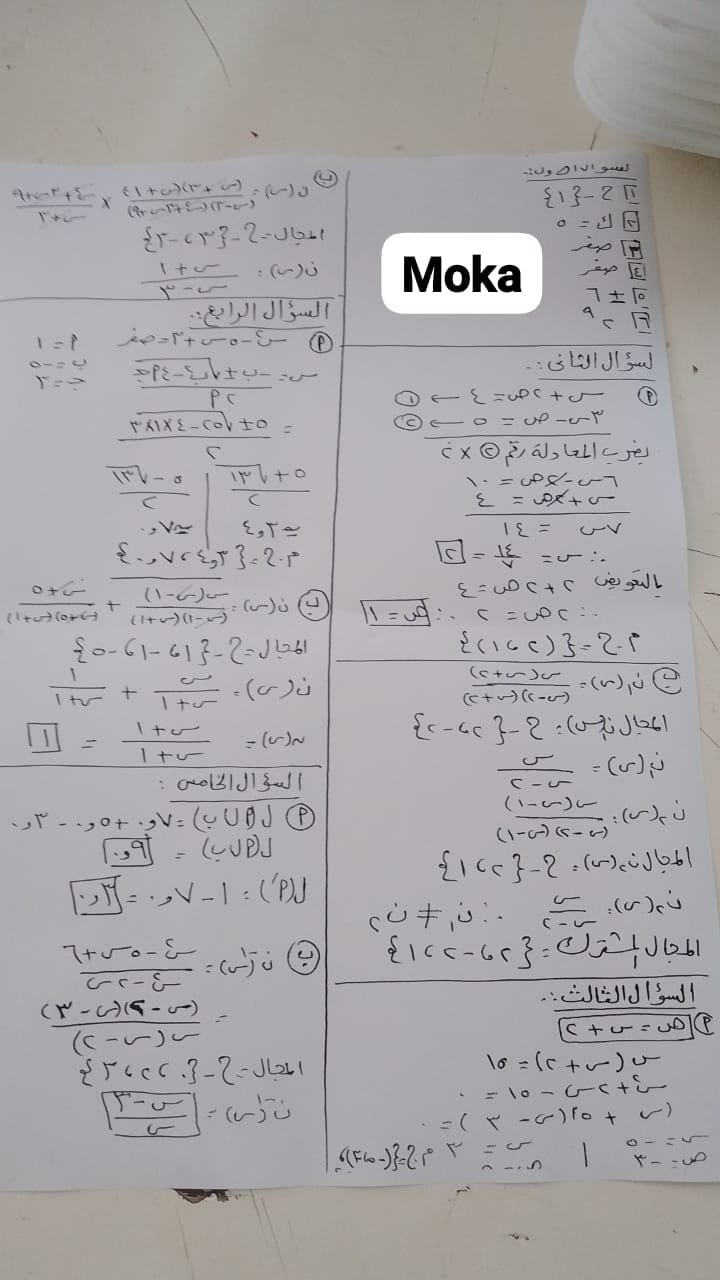 السؤال الأول:
١ ح - {١}
٢ ك = ٥
٣ صفر
٤ صفر
٥ ± ٦
٦ ٢ ٩
Moka
السؤال الثانى:.
P س + ٢ص = ٤ ← ١
٣س - ص = ٥ ← ٢
بضرب المعادلة رقم ٢ × ٢
٦س - ٢ص = ١٠
س + ٢ص = ٤
٧س = ١٤
∴ س = ١٤/٧ = ٢
بالتعويض ٢ + ٢ص = ٤
∴ ٢ص = ٢ ∴ ص = ١
م.ح = {(٢،١)}
ب ن١(س) = س(س+٢)/(س-٢)(س+٢)
المجال ن١(س) = ح - {٢، -٢}
ن١(س) = س/س-٢
ن٢(س) = س(س-١)/(س-٢)(س-١)
المجال ن٢(س) = ح - {٢، ١}
ن٢(س) = س/س-٢ ∴ ن١ ≠ ن٢
المجال المشترك = {٢، -٢، ١}
السؤال الثالث:.
P ص = س + ٢
س(س+٢) = ١٥
س² + ٢س - ١٥ = ٠
(س + ٥)(س - ٣) = ٠
س = -٥ | س = ٣
ص = -٣
ب ن(س) = (س+٣)(س+١)/(س-٣)(س²+٣س+٩) × س²+٣س+٩/س+٣
المجال = ح - {٣، -٣}
ن(س) = س+١/س-٣
السؤال الرابع:.
P س² - ٥س + ٣ = صفر P = ١
ب = -٥
ج = ٣
س = -ب ± √ب² - ٤Pج/٢P
= ٥ ± √٢٥ - ٤×١×٣/٢
٥ + √١٣/٢ | ٥ - √١٣/٢
≃ ٤,٣ ≃ ٠,٧
م.ح = {٤,٣، ٠,٧}
ب ن(س) = س(س-١)/(س-١)(س+١) + س+٥/(س+٥)(س+١)
المجال = ح - {١، -١، -٥}
ن(س) = س/س+١ + ١/س+١
ن(س) = س+١/س+١ = ١
السؤال الخامس:
P ل(P∪ب) = ٠,٧ + ٠,٥ - ٠,٣
ل(P∪ب) = ٠,٩
ل(P′) = ١ - ٠,٧ = ٠,٣
ب ن⁻¹(س) = س² - ٥س + ٦/س² - ٢س
= (س-٢)(س-٣)/س(س-٢)
المجال = ح - {٠، ٢، ٣}
ن⁻¹(س) = س-٣/س